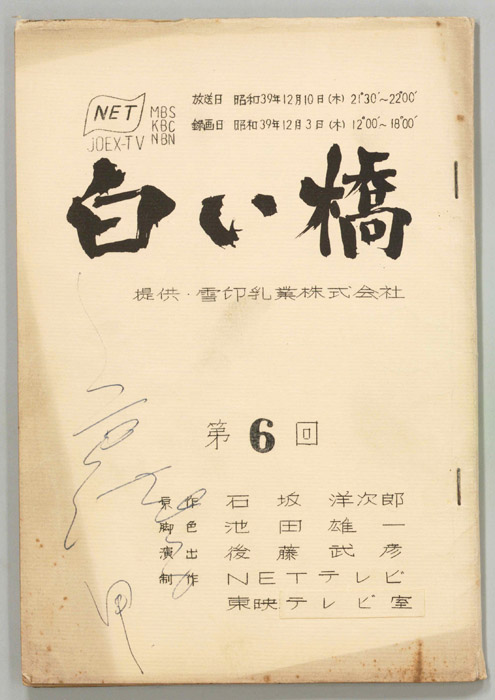 放送日 昭和39年12月10日(木) 21°30′~22°00′
録画日 昭和39年12月3日(木) 12°00′~18°00′
NET
JOEX-TV
MBS
KBC
NBN
白い橋
提供・雪印乳業株式会社
第6回
原作 石坂洋次郎
脚色 池田雄一
演出 後藤武彦
制作 NETテレビ
東映テレビ室